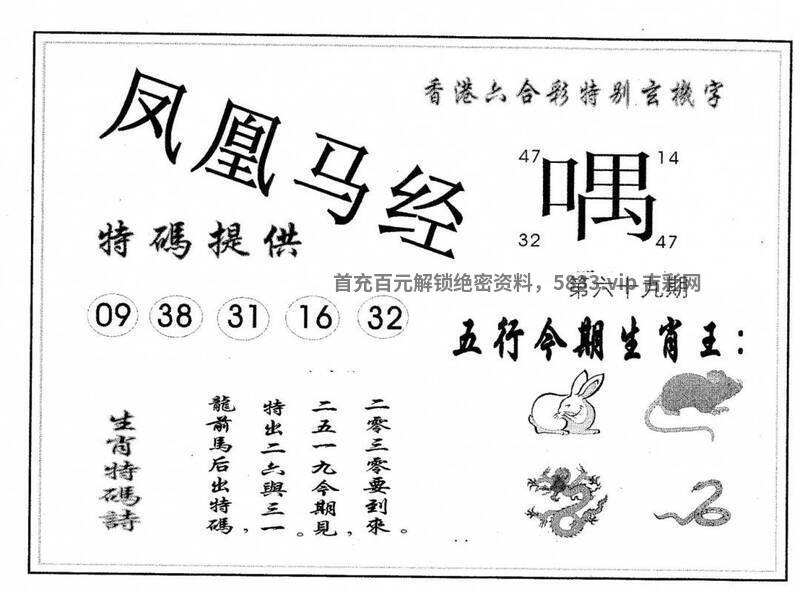 香港六合彩特别玄機字
凤凰马经
47 喁 14
32 47
特碼提供
首充百元解锁绝密资料，5833.vip 古彩网
第六十九期
09 38 31 16 32
五行今期生肖王：
生肖特碼詩
龍前馬后出特碼，
特出二六與三一。
二五一九今期見，
二零三零要到來。